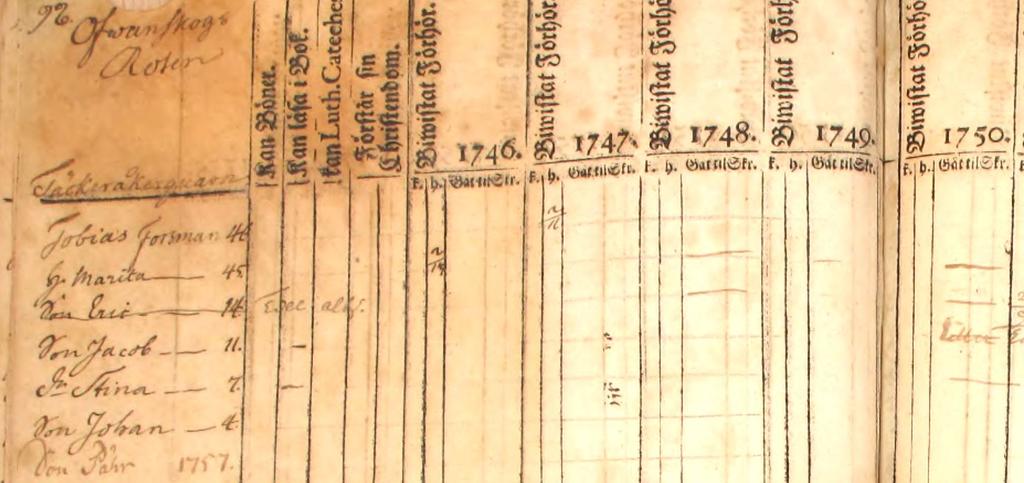 92.
Ofwanskogs
Roten
Kan Böner.
Kan läsa i Bok.
kan Luth. Cateches
Förstår sin
Christendom.
Biwistat Förhör.
1746.
Biwistat Förhör.
1747.
Biwistat Förhö
1748.
Biwistat Förhö
1749.
Biwistat Förhö
1750.
k. h. Gåt til Skr.
k. h. Gåt til Skr.
k. h. Gåt til Skr.
k. h. Gåt til Skr.
k. h. Gåt til Skr.
Tobias Forsman 46
h. Marita — 45
Son Eric — 14
Son Jacob — 11.
Dr Stina — 7.
Son Johan — 4
Son Pähr 1757.